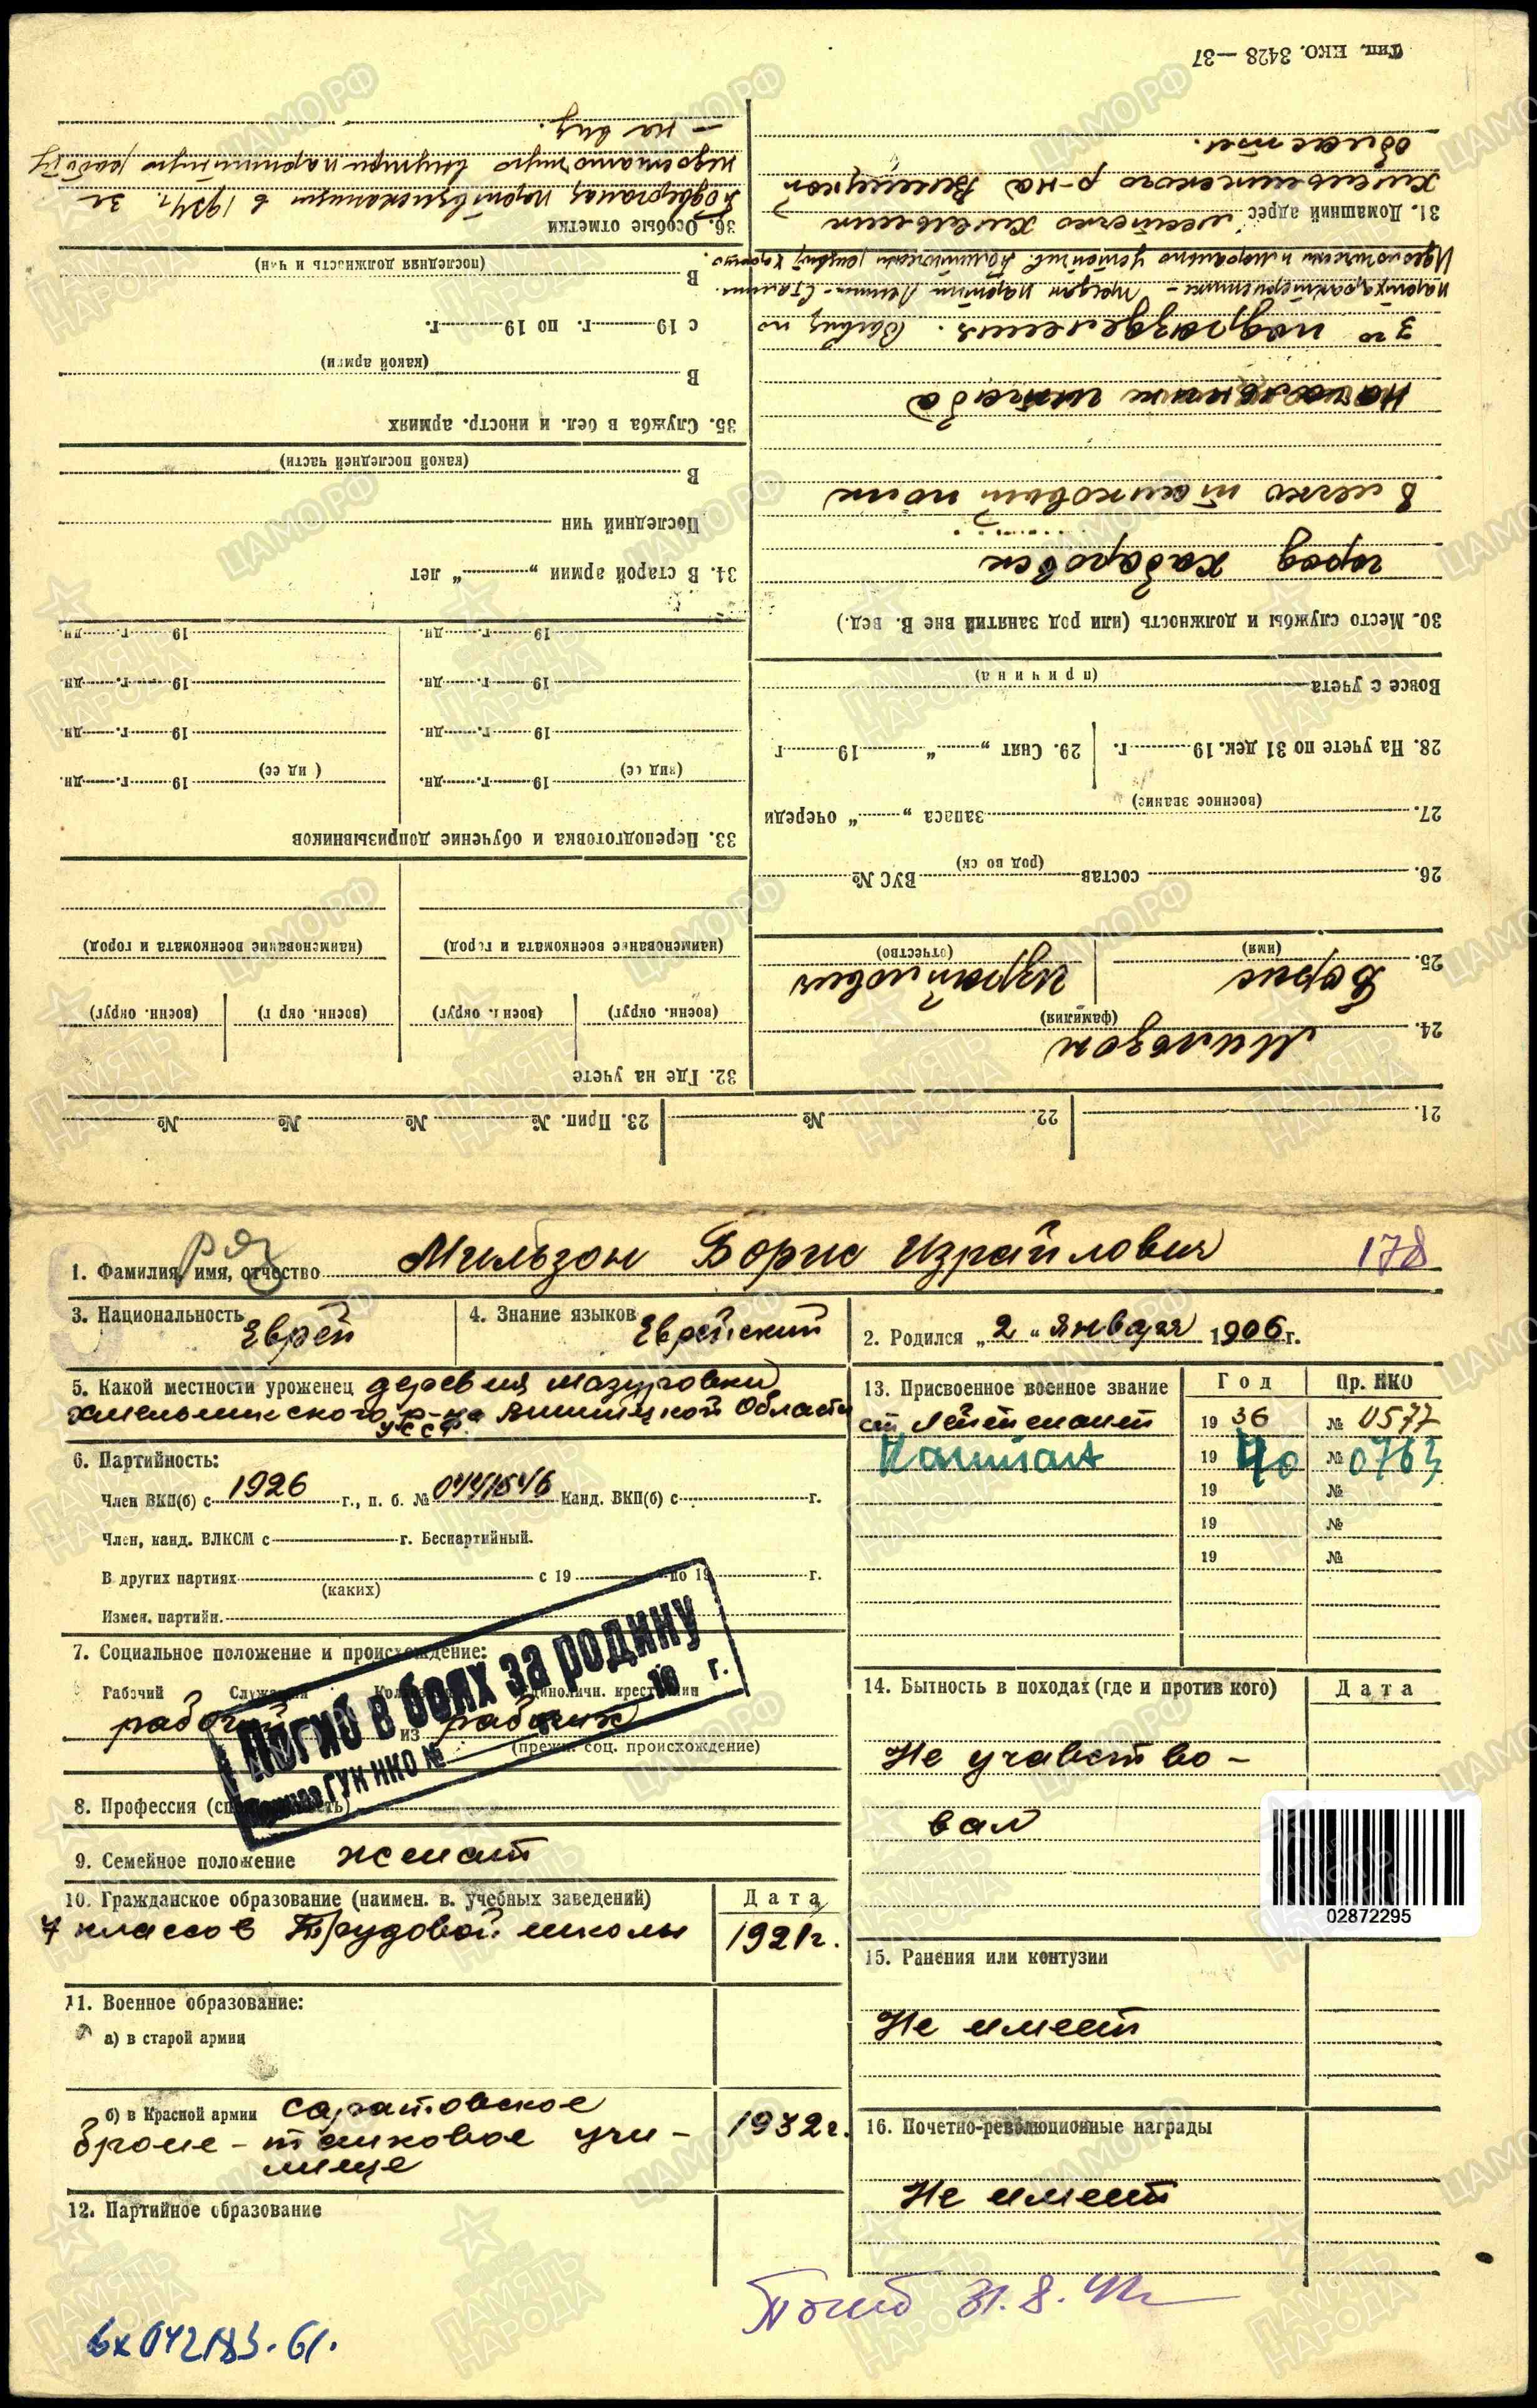 1. Фамилия, имя, отчество Мильзон Борис Израйлович 178
3. Национальность Еврей
4. Знание языков Еврейский
2. Родился „2“ января 1906 г.
5. Какой местности уроженец деревня Мазуровки
Хмельникского р-на Винницкой Области
УССР.
6. Партийность:
Член ВКП(б) с 1926 г., п. б. № 0441546 Канд. ВКП(б) с г.
Член, канд. ВЛКСМ с г. Беспартийный.
В других партиях с 19 по 19 г.
(каких)
Измен. партийн.
7. Социальное положение и происхождение:
Рабочий Служащий Единоличн. крестьянин
рабочий из рабочих
(прежн. соц. происхождение)
Погиб в боях за родину
Приказ ГУК НКО № 19 г.
8. Профессия (специальность)
9. Семейное положение женат
10. Гражданское образование (наимен. в. учебных заведений) Дата
7 классов Трудовой школы 1921г.
11. Военное образование:
а) в старой армии
б) в Красной армии Саратовское
Броне-танковое учи-
лище 1932г.
12. Партийное образование
13. Присвоенное военное звание Год Пр. НКО
ст лейтенант 19 36 № 0577
Капитан 19 40 № 0763
19 №
19 №
19 №
14. Бытность в походах (где и против кого) Дата
Не участво-
вал
02872295
15. Ранения или контузии
Не имеет
16. Почетно-революционные награды
Не имеет
Погиб 31.8.42г
вх 042183. 61.
21. 22. № 23. Прип. № № № №
24. Мильзон
(фамилия)
25. Борис Израйлович
(имя) (отчество)
26. состав ВУС №
(род во ск)
27. запаса „ “ очереди
(военное звание)
28. На учете по 31 дек. 19 г. 29. Снят „ “ 19 г
Вовсе с учета
(причина)
30. Место службы и должность (или род занятий вне В. вед.)
город Хабаровск
8 легко танковый полк
начальник штаба
3го подразделения.
31. Домашний адрес местечко Хмельник
Хмельникского р-на Винницкой
области.
32. Где на учете
(воен. округ) (воен. округ) (воен. окр г) (воен. округ)
(наименование военкомата и город) (наименование военкомата и город)
33. Переподготовка и обучение допризывников
(вид сс) 19 г. дн. ( ид сс) 19 г. дн.
19 г. дн. 19 г. дн.
19 г. дн. 19 г. дн.
19 г. дн. 19 г. дн.
34. В старой армии „ “ лет
Последний чин
В
(какой последней части)
35. Служба в бел. и иностр. армиях
В
(какой армии)
с 19 г. по 19 г.
В
(последняя должность и чин)
36. Особые отметки
Подвергался партвзысканию в 1934г. за
недостаточную внутри партийную работу
– на вид.
Тип. ЕКО. 3428—37